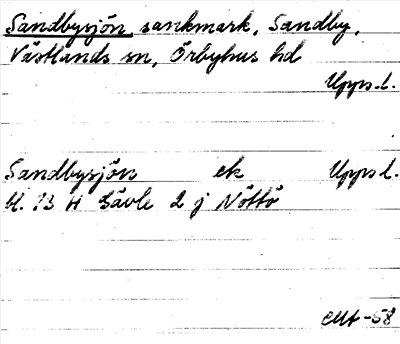 Sandbysjön sankmark, Sandby,
Västlands sn, Örbyhus hd
Upps.l.
Sandbysjön ek Upps l.
bl. 13 H Gävle 2 j Nöttö
-58